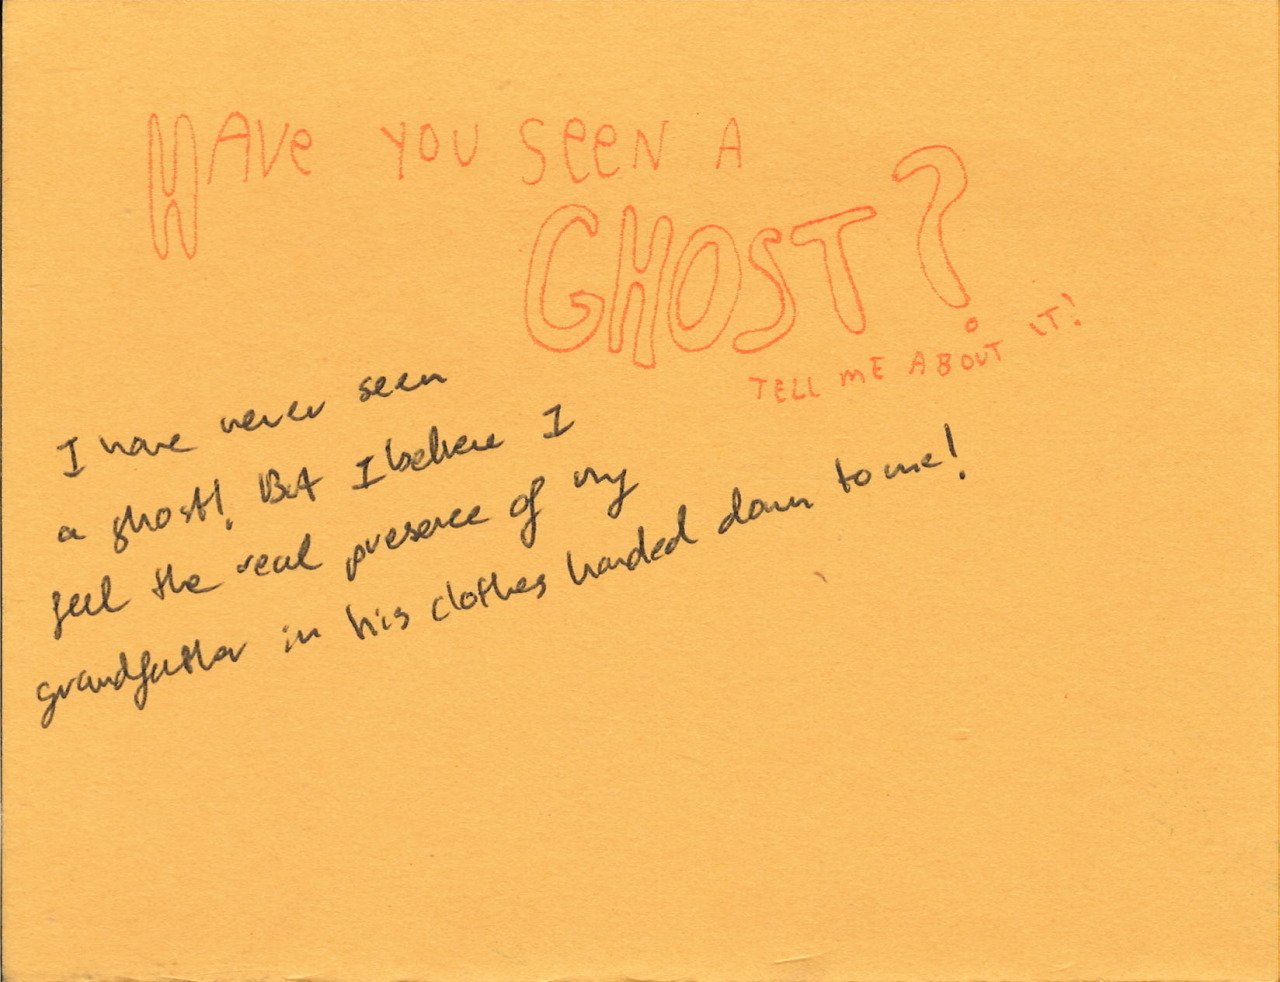 HAVE YOU SEEN A
GHOST?
TELL ME ABOUT IT!
I have never seen
a ghost!, But I believe I
feel the real presence of my
grandfather in his clothes handed down to me!